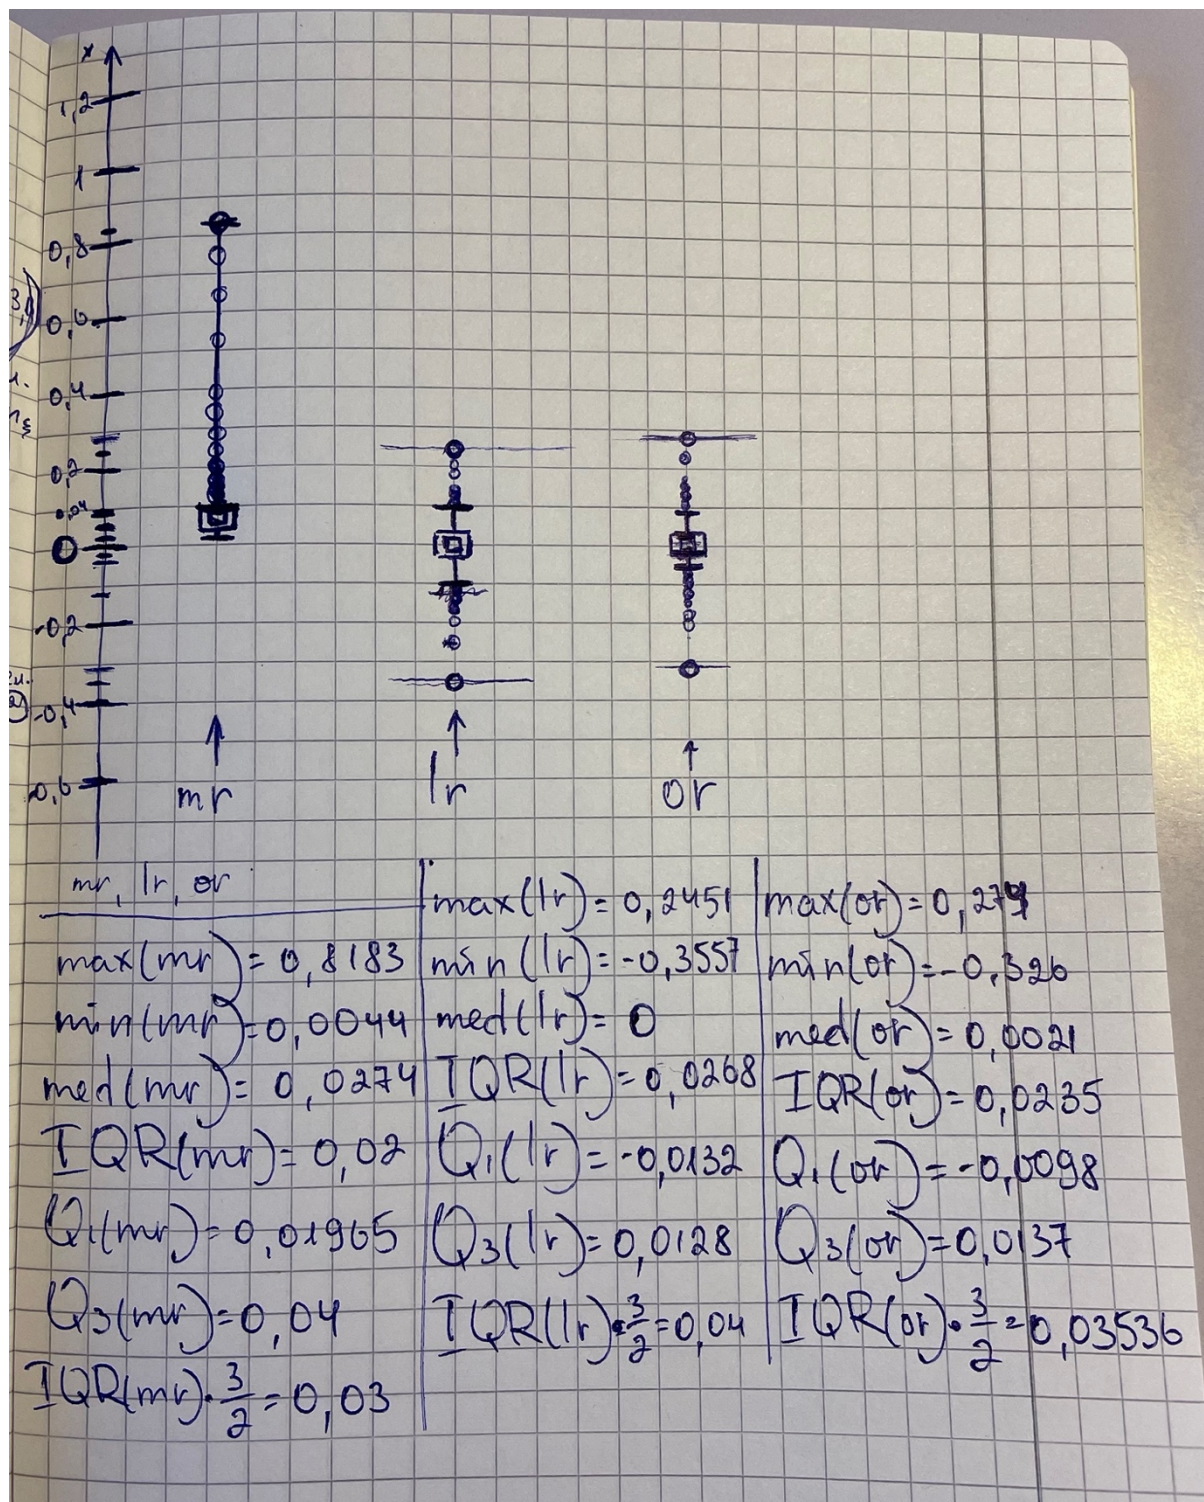 x
1,2
1
0,8
0,6
0,4
0,2
0,04
0
-0,2
-0,4
-0,6
mr
lr
or
mr, lr, or
max(mr)=0,8183
min(mr)=0,0044
med(mr)=0,0274
IQR(mr)=0,02
Q1(mr)=0,01965
Q3(mr)=0,04
IQR(mr)·3/2=0,03
max(lr)=0,2451
min(lr)=-0,3557
med(lr)=0
IQR(lr)=0,0268
Q1(lr)=-0,0132
Q3(lr)=0,0128
IQR(lr)·3/2=0,04
max(or)=0,279
min(or)=-0,326
med(or)=0,0021
IQR(or)=0,0235
Q1(or)=-0,0098
Q3(or)=0,0137
IQR(or)·3/2=0,03536